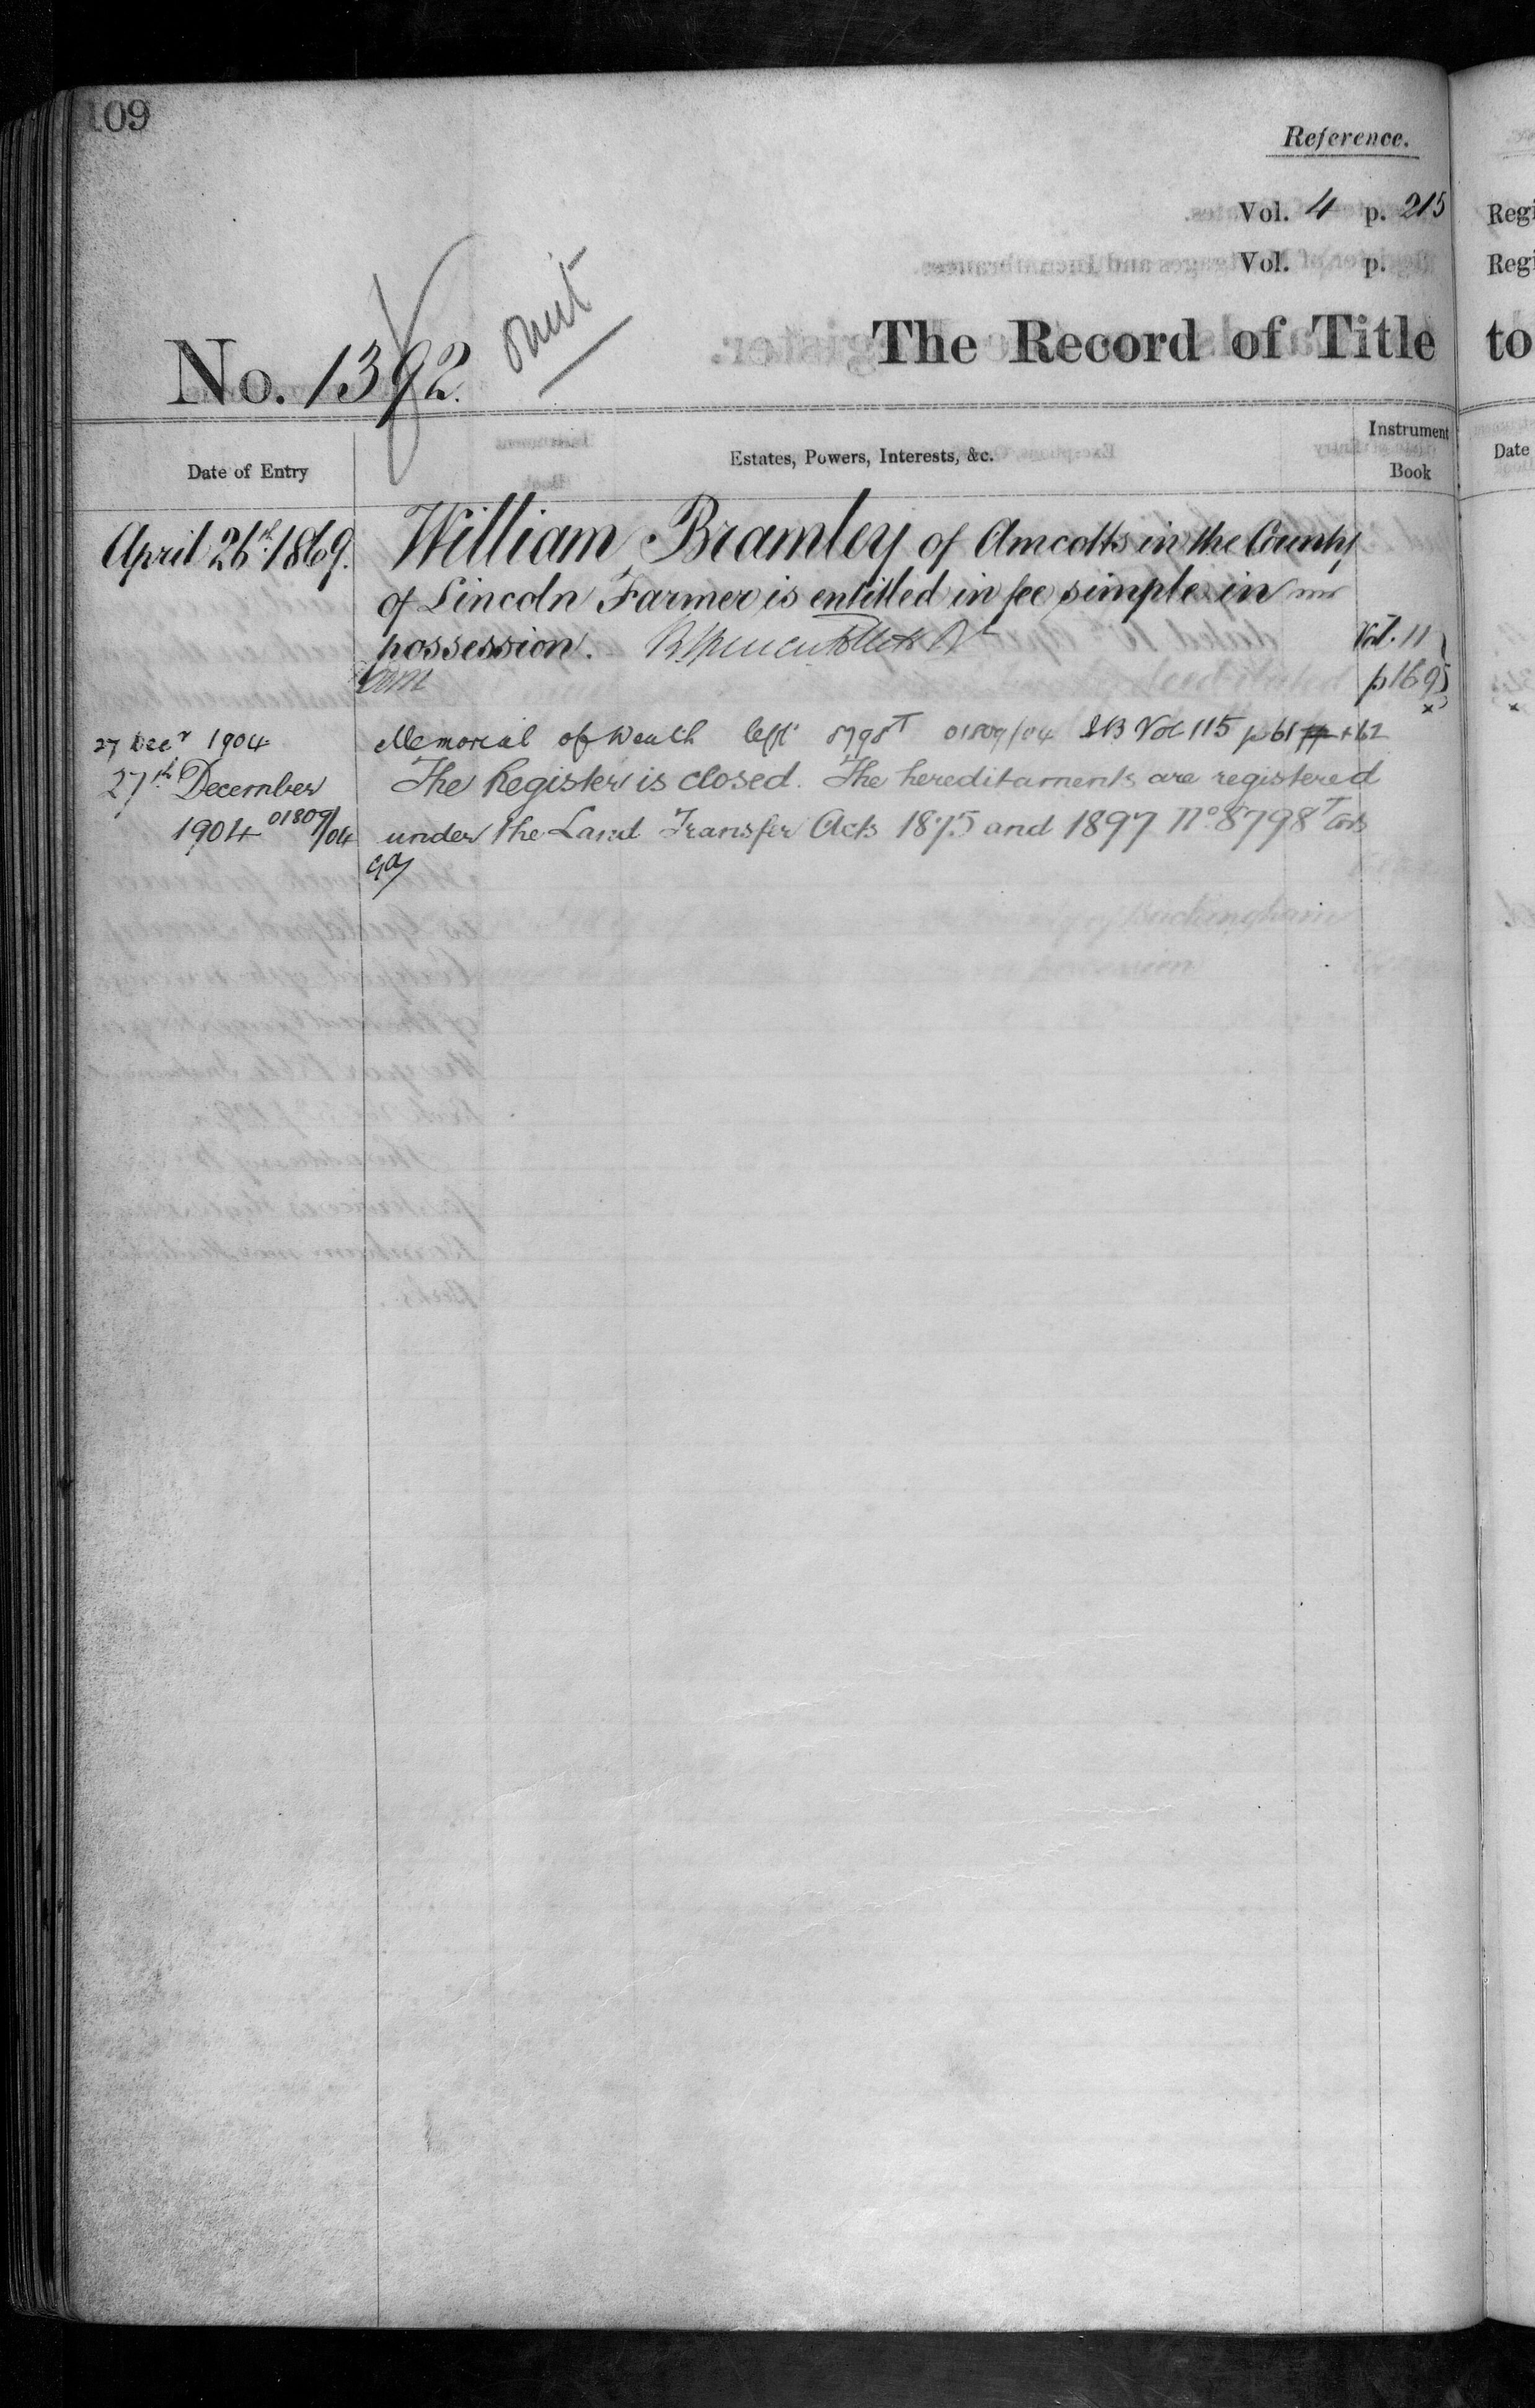 109
Reference.
Vol. 4 p. 215
Vol. p.
omit
No. 1392.
The Record of Title
to
Regi
Regi
Date of Entry
Estates, Powers, Interests, &c.
Instrument
Book
Date
April 26th 1869.
William Bramley of Amcotts in the County
of Lincoln Farmer is entitled in fee simple in
possession.
Vol. 11
p 169
27 Decr 1904
Memorial of Death left 8798T 01809/04 IB Vol 115 p 61 + 62
27th December
1904 01809/04
The Register is closed. The hereditaments are registered
under the Land Transfer Acts 1875 and 1897 No. 8798T